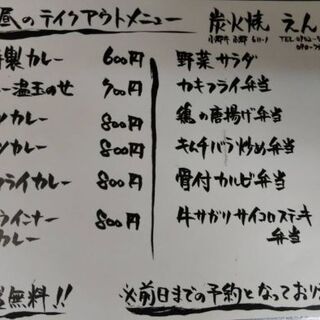 昼のテイクアウトメニュー
製カレー 600円
ー温玉のせ 700円
ツカレー 800円
ンカレー 800円
フライカレー 800円
ウインナー
カレー 800円
無料!!
炭火焼 えん
野菜サラダ
カキフライ弁当
鶏の唐揚げ弁当
キムチバラ炒め弁当
骨付カルビ弁当
牛サガリサイコロステーキ
弁当
※前日までの予約となっており